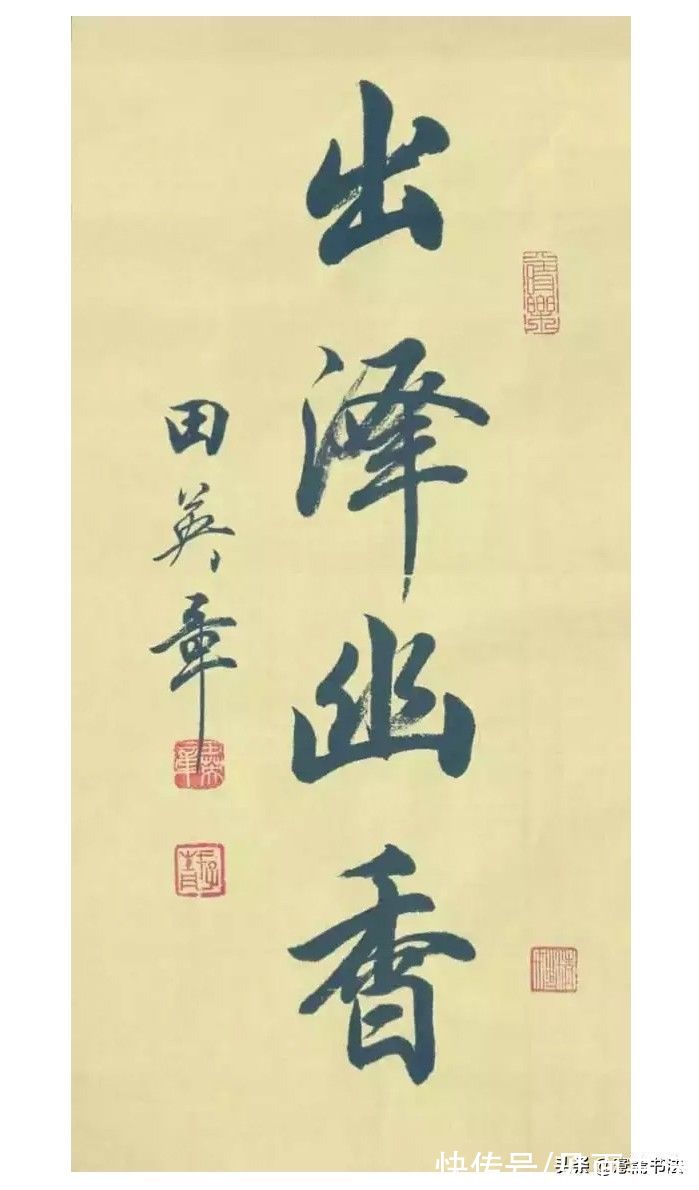 出泽幽香
田英章
快传号/
头条@
书法